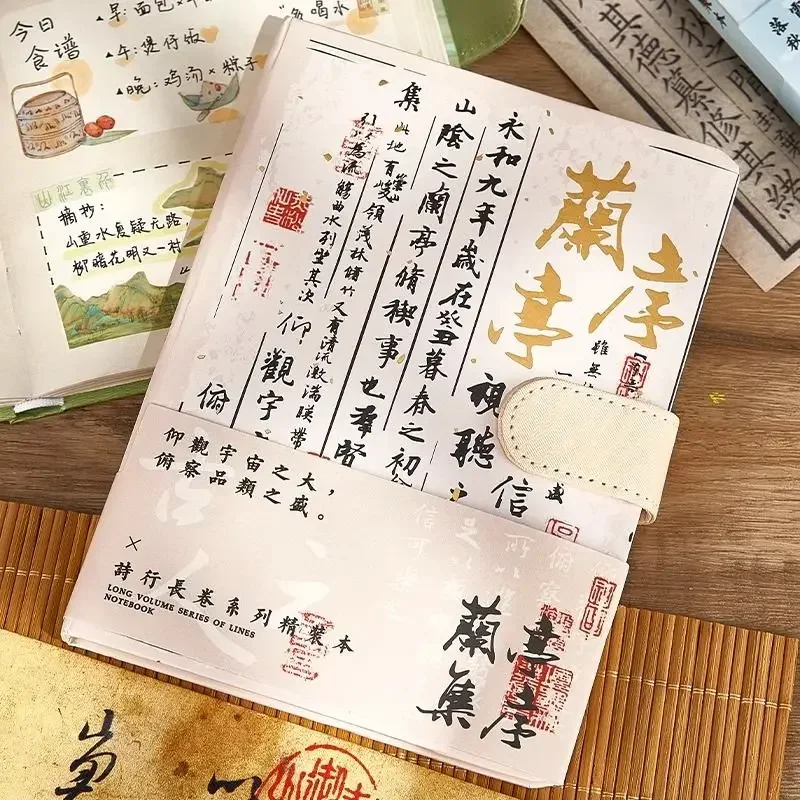 今日
食谱
▲早:面包×
▲午:煲仔饭
▲晚:鸡汤×粽子
喝水
摘抄:
山重水复疑无路,
柳暗花明又一村
其德纂修其
蘭亭序
雖無
視聽
信
永和九年歲在癸丑暮春之初
山陰之蘭亭脩稧事也羣賢
集
此地有崇山峻領茂林脩竹又有清流激湍暎帶
為流觴曲水列坐其次
仰觀宇
俯
仰觀宇宙之大,
俯察品類之盛。
×
詩行長卷系列精裝本
LONG VOLUME SERIES OF LINES
NOTEBOOK
蘭亭
集序